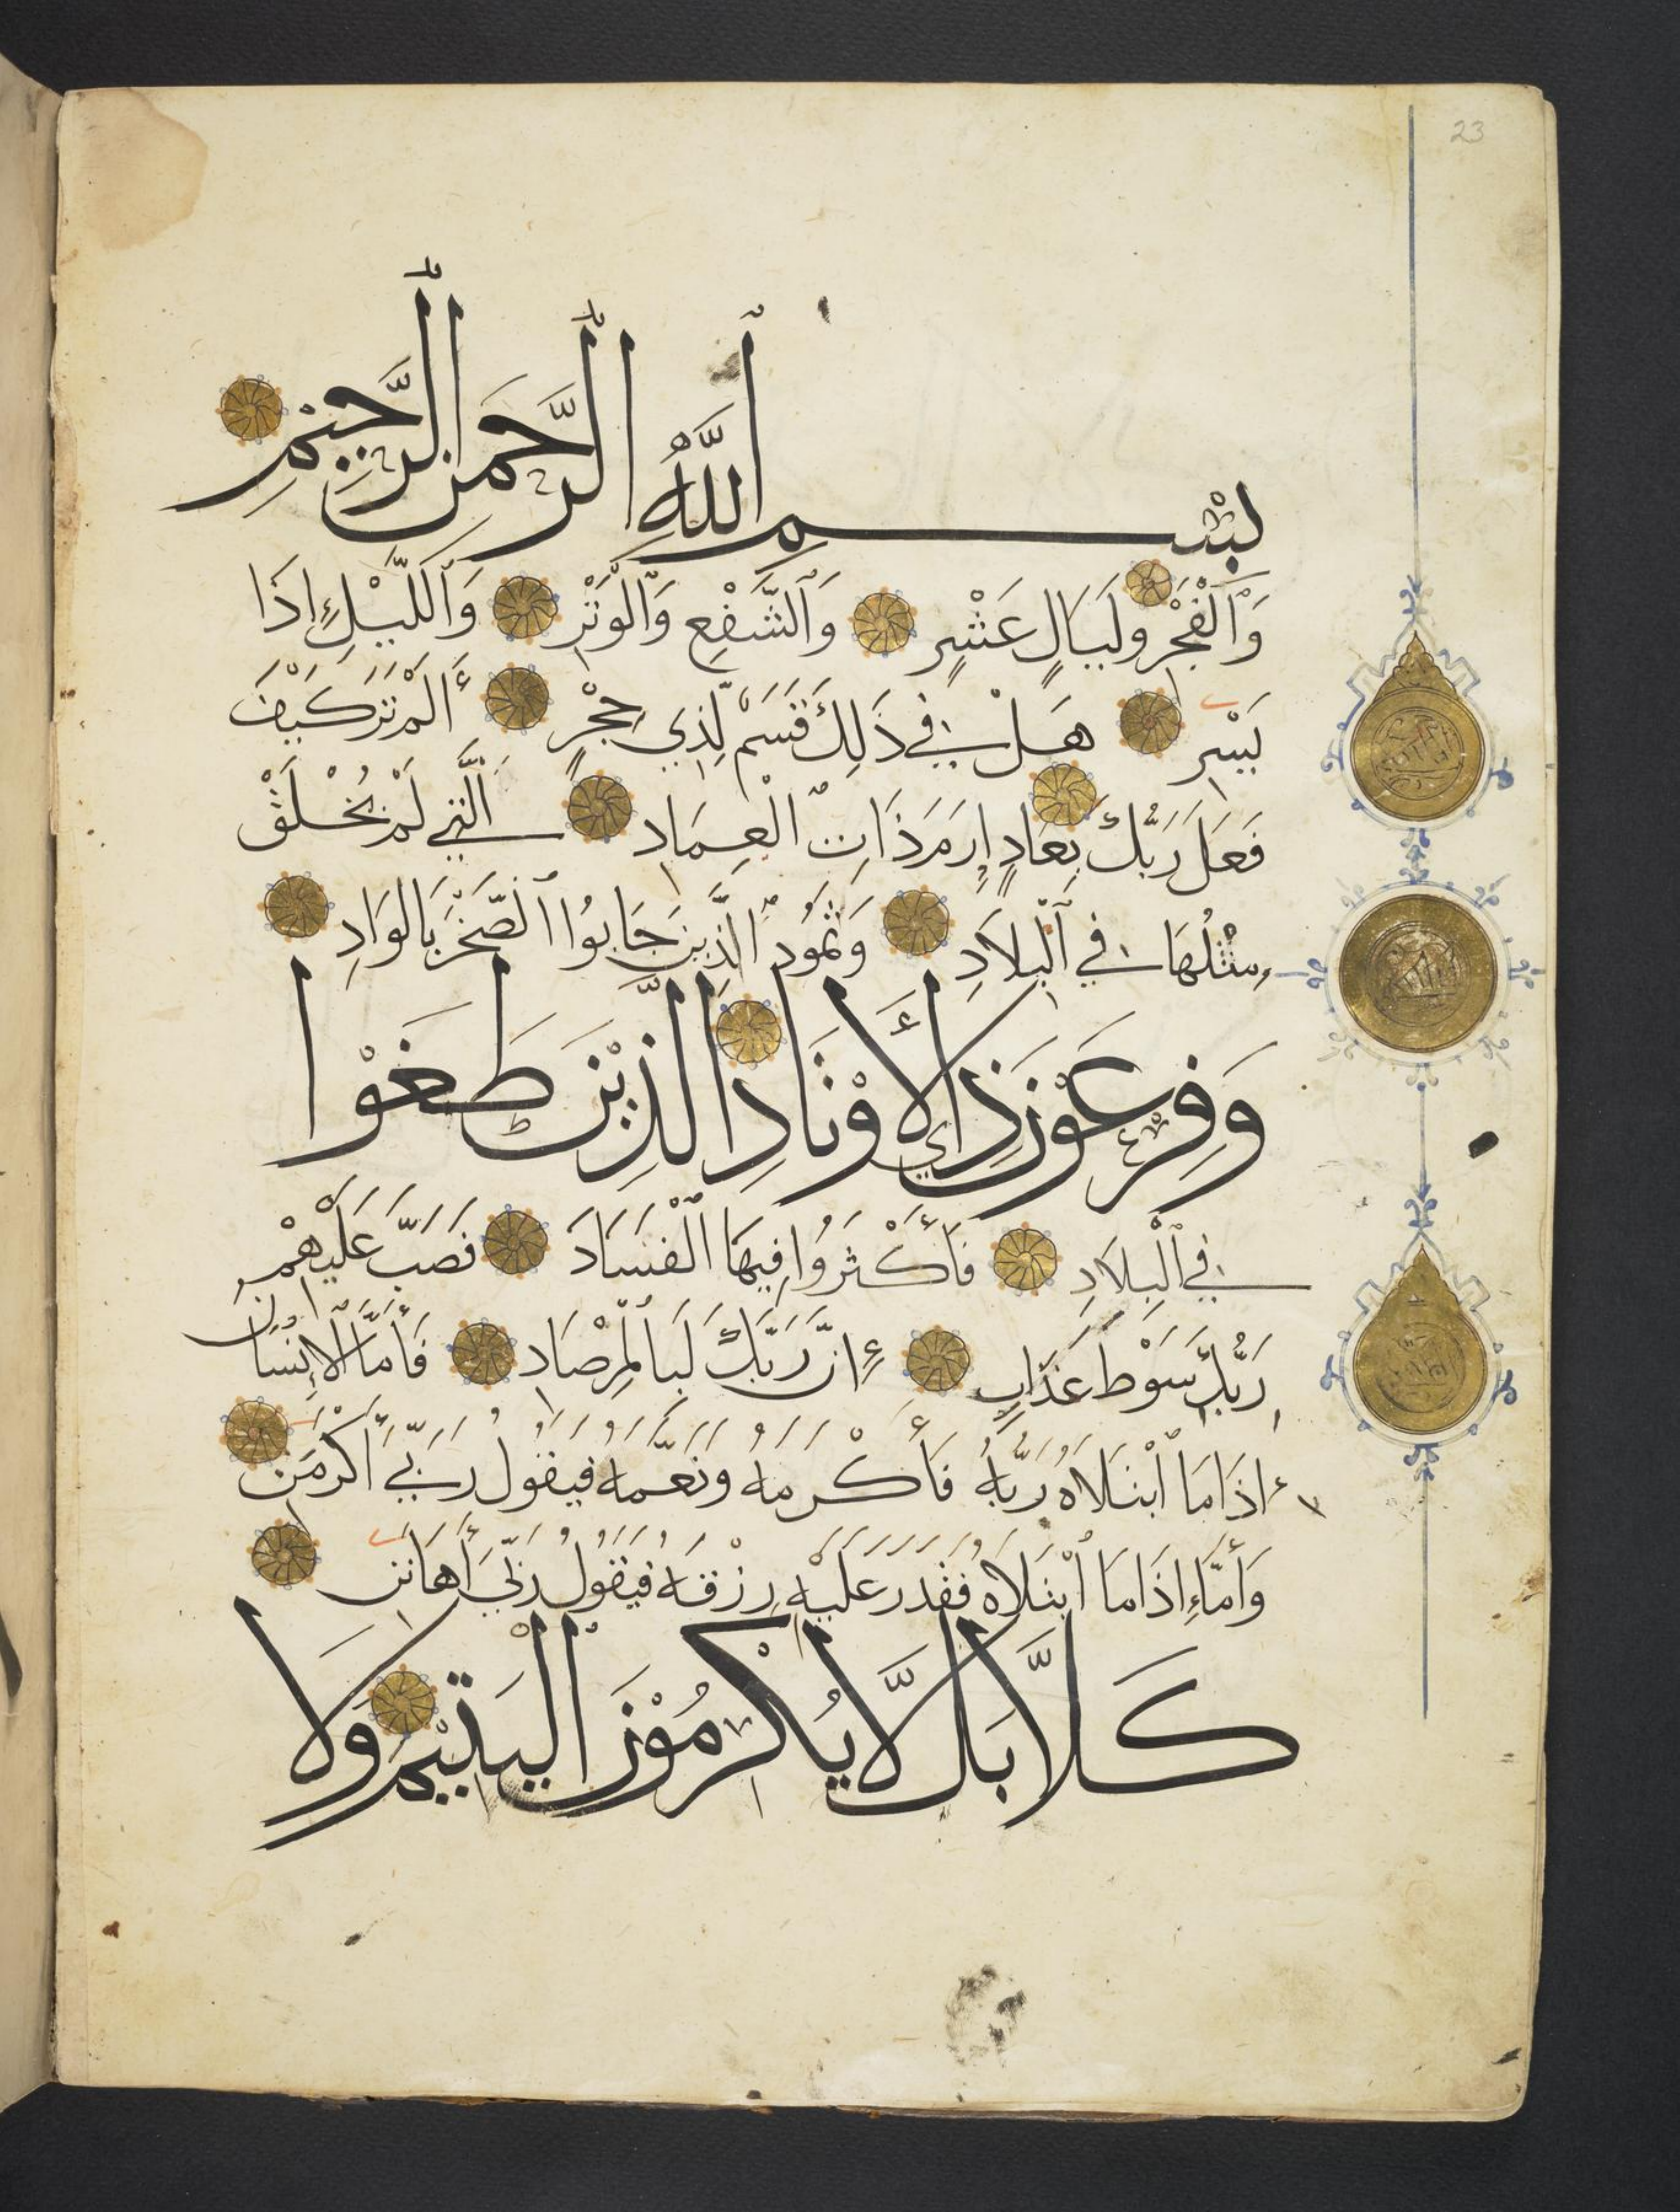 23
بِسْمِ ٱللَّهِ ٱلرَّحْمَنِ ٱلرَّحِيْمِ
وَٱلْفَجْرِ وَلَيَالٍ عَشْرٍ وَٱلشَّفْعِ وَٱلْوَتْرِ وَٱللَّيْلِ إِذَا
يَسْرِ هَلْ فِي ذَلِكَ قَسَمٌ لِّذِي حِجْرٍ أَلَمْ تَرَ كَيْفَ
فَعَلَ رَبُّكَ بِعَادٍ إِرَمَ ذَاتِ الْعِمَادِ الَّتِي لَمْ يُخْلَقْ
مِثْلُهَا فِي ٱلْبِلَادِ وَثَمُودَ الَّذِينَ جَابُوا ٱلصَّخْرَ بِالْوَادِ
وَفِرْعَوْنَ ذِي الْأَوْتَادِ الَّذِيْنَ طَغَوْا
فِي ٱلْبِلَادِ فَأَكْثَرُوا فِيهَا الْفَسَادَ فَصَبَّ عَلَيْهِمْ
رَبُّكَ سَوْطَ عَذَابٍ إِنَّ رَبَّكَ لَبِالْمِرْصَادِ فَأَمَّا ٱلْإِنْسَانُ
إِذَا مَا ٱبْتَلَاهُ رَبُّهُ فَأَكْرَمَهُ وَنَعَّمَهُ فَيَقُولُ رَبِّي أَكْرَمَنِ
وَأَمَّا إِذَا مَا ٱبْتَلَاهُ فَقَدَرَ عَلَيْهِ رِزْقَهُ فَيَقُولُ رَبِّي أَهَانَنِ
كَلَّا بَل لَّا يُكْرِمُوْنَ الْيَتِيْمَ وَلَا